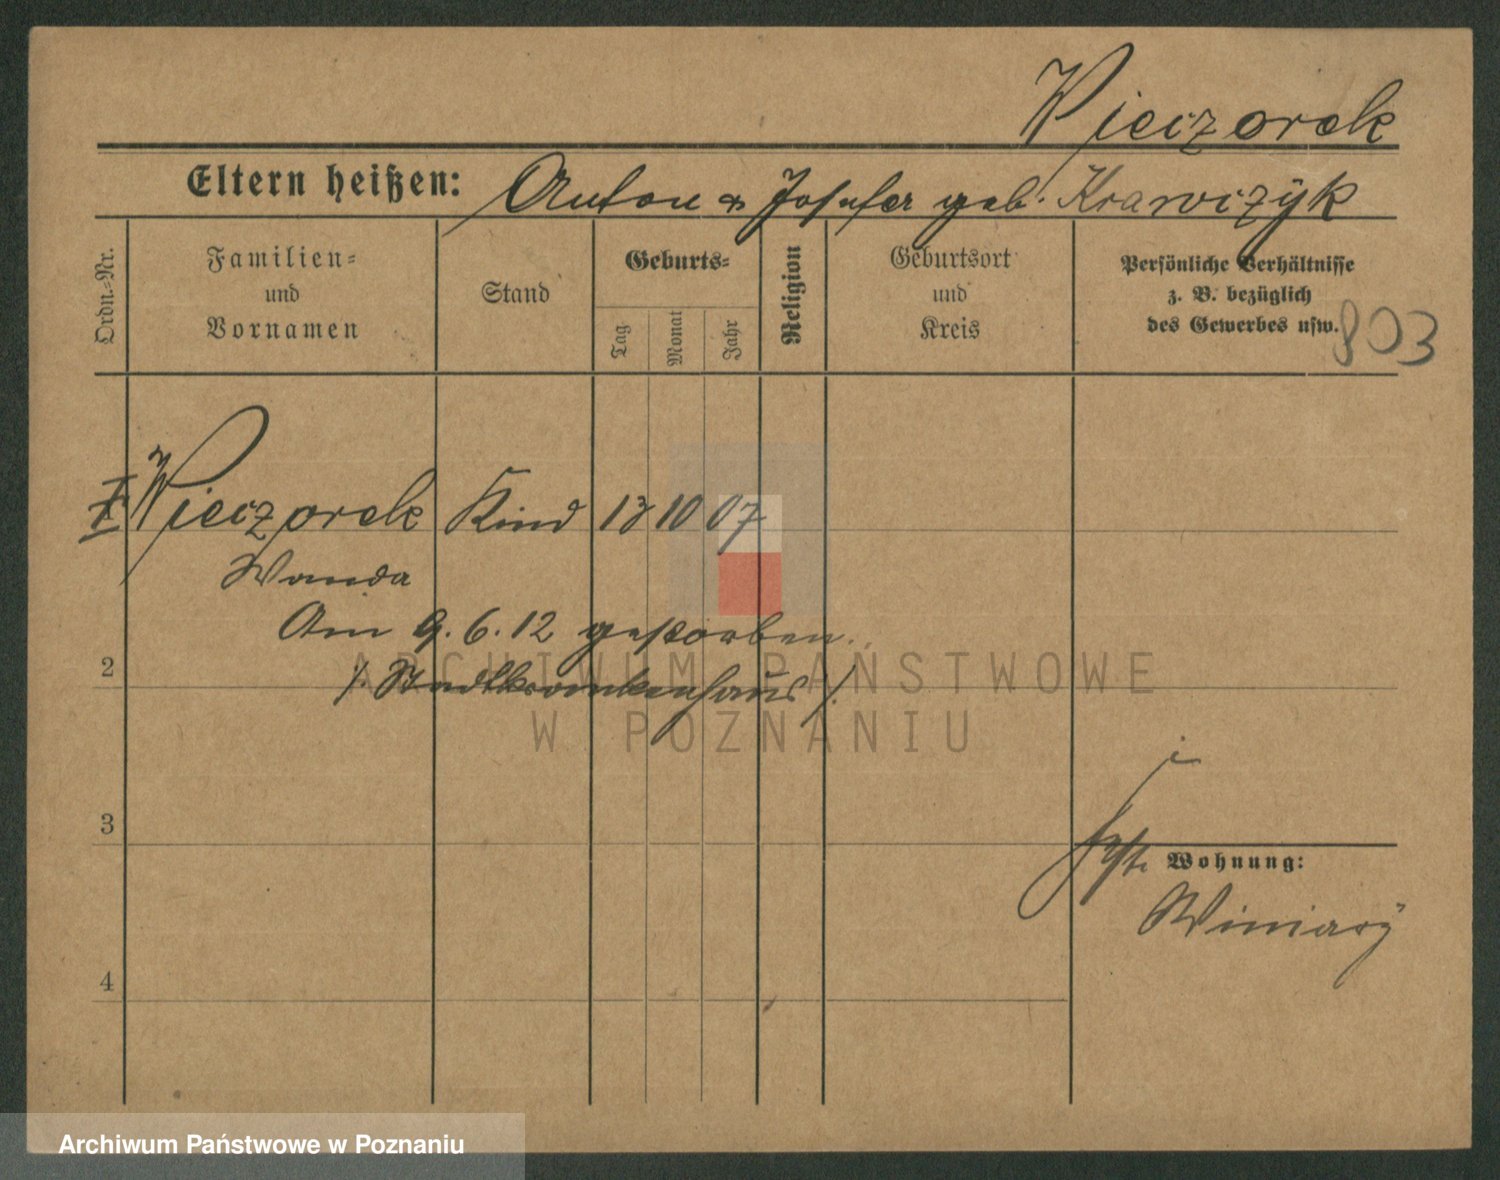 Wieczorek
Eltern heißen: Anton & Josefa geb. Krawczÿk
Ordn.-Nr.
Familien-
und
Vornamen
Stand
Geburts-
Tag
Monat
Jahr
Religion
Geburtsort
und
Kreis
Persönliche Verhältnisse
z. B. bezüglich
des Gewerbes usw.
803
1 Wieczorek Kind 13 10 07
Wanda
Am 9. 6. 12 gestorben.
2
/. Stadtkrankenhaus /.
3
Wohnung:
Winiarÿ
4
ARCHIWUM PAŃSTWOWE
W POZNANIU
Archiwum Państwowe w Poznaniu